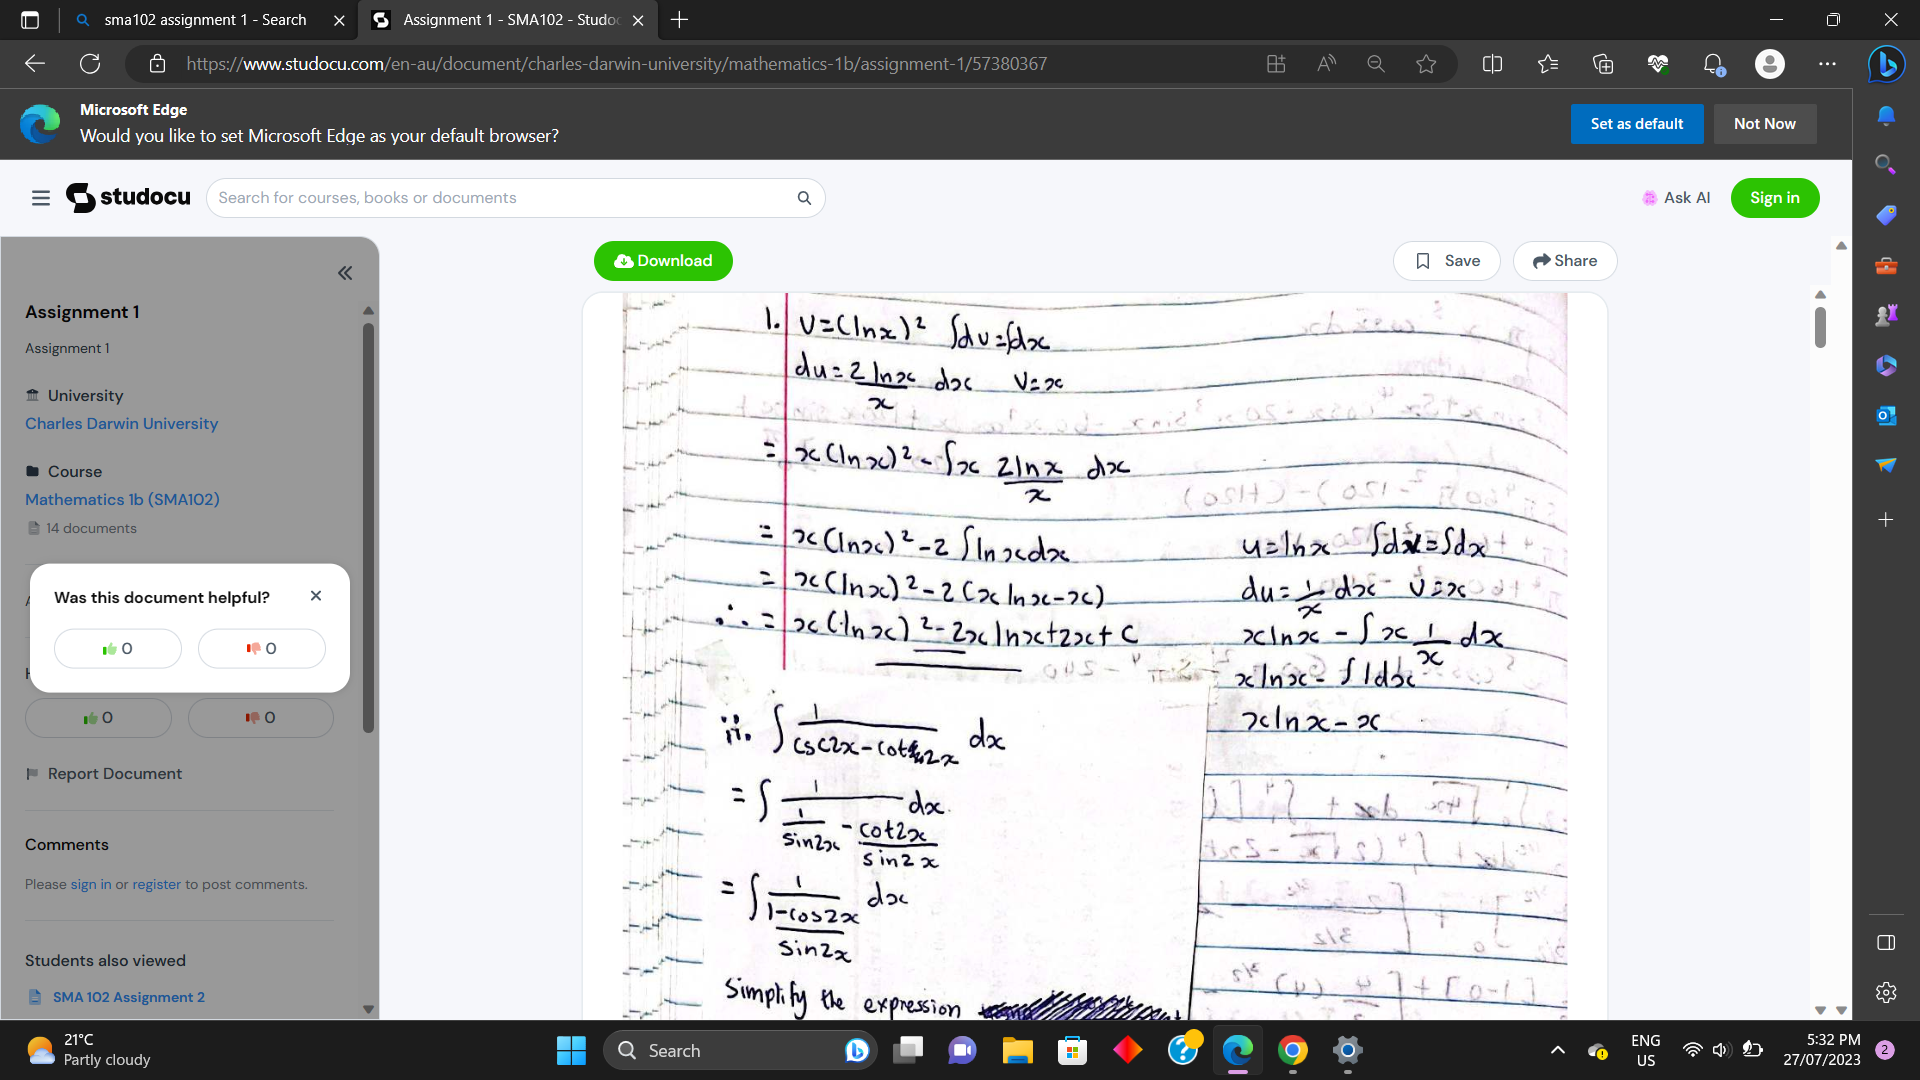 sma102 assignment 1 - Search
Assignment 1 - SMA102 - Studoc
https://www.studocu.com/en-au/document/charles-darwin-university/mathematics-1b/assignment-1/57380367
Microsoft Edge
Would you like to set Microsoft Edge as your default browser?
Set as default
Not Now
studocu
Search for courses, books or documents
Ask AI
Sign in
Download
Save
Share
Assignment 1
Assignment 1
University
Charles Darwin University
Course
Mathematics 1b (SMA102)
14 documents
Was this document helpful?
0
0
0
0
Report Document
Comments
Please sign in or register to post comments.
Students also viewed
SMA 102 Assignment 2
1. U=(lnx)² ∫dv=∫dx
du=2lnx/x dx V=x
= x(lnx)² - ∫x 2lnx/x dx
= x(lnx)² - 2∫lnxdx
= x(lnx)² - 2(xlnx-x)
∴ = x(lnx)² - 2xlnx+2x+C
u=lnx ∫dv=∫dx
du=1/x dx V=x
xlnx - ∫x 1/x dx
xlnx - ∫1dx
xlnx - x
ii. ∫ 1/(csc2x-cot2x) dx
= ∫ 1/(1/sin2x - cot2x/sin2x) dx
= ∫ 1/((1-cos2x)/sin2x) dx
Simplify the expression
21°C
Partly cloudy
Search
ENG
US
5:32 PM
27/07/2023
2